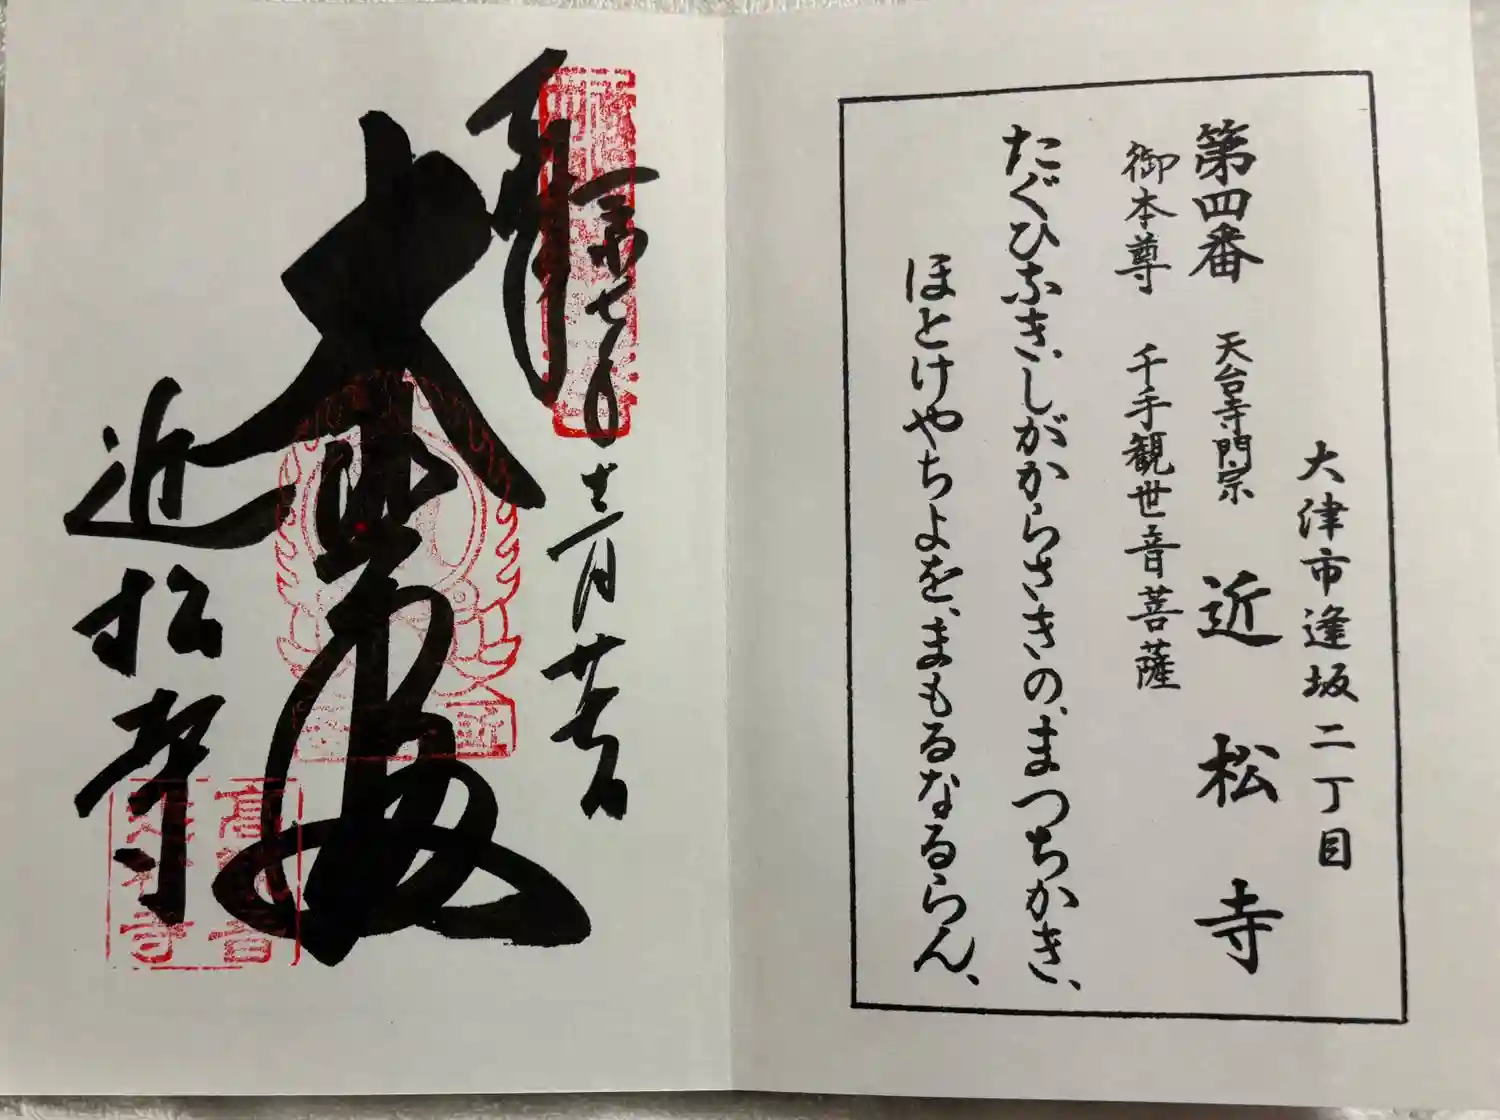 大津市逢坂二丁目
第四番 天台寺門宗 近松寺
御本尊 千手観世音菩薩
たぐひなき、しがからさきの、まつちかき、
ほとけやちよを、まもるなるらん、
七年十二月
奉拝
大悲殿
近松寺
高観音
近松寺